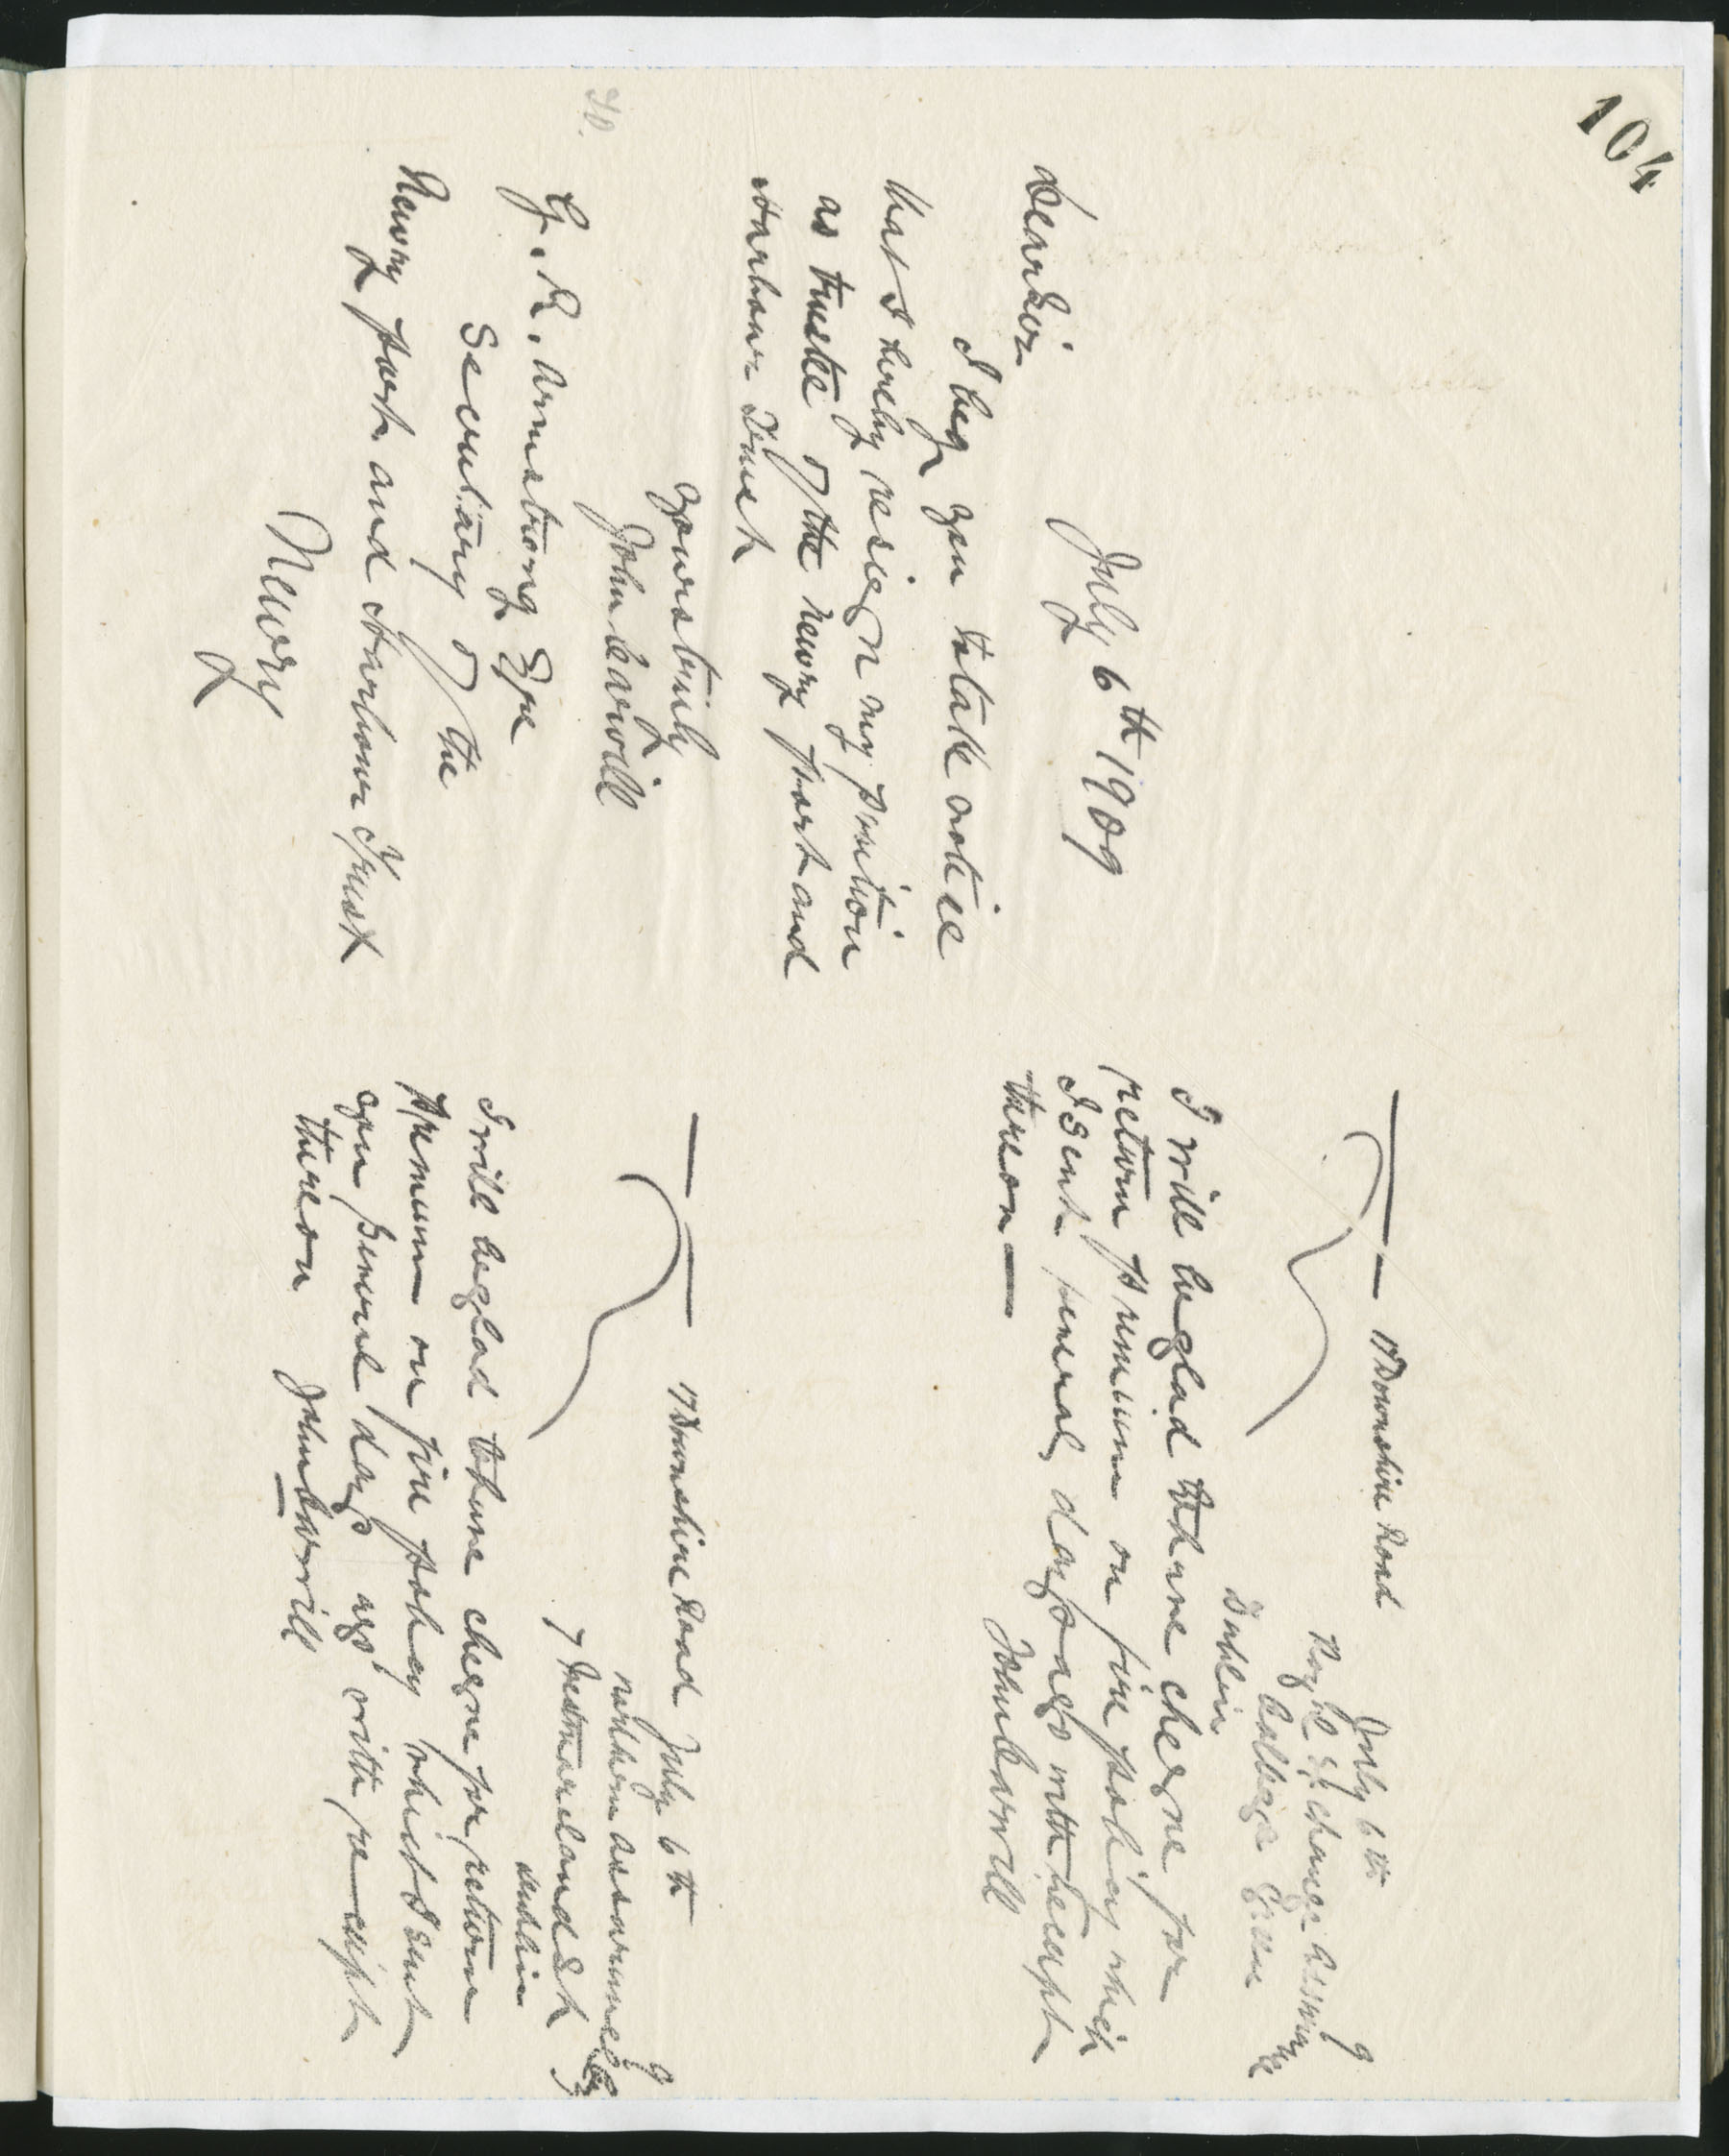 104
July 6th 1909
Dear Sir
I beg you to take notice
that I hereby resign my position
as trustee of the Newry Port and
Harbour Trust
Yours truly
John Carvill
G. R. Armstrong Esqre
Secretary of the
Newry Port and Harbour Trust
Newry
17 Downshire Road
July 6th 9
Royal Exchange Assurance
College Green
Dublin
I will be glad to have cheque for
return premium on fire policy which
I sent several days ago with receipt
thereon —
John Carvill
17 Downshire Road July 6th 9
Northern Assurance Coy
7 Westmoreland St
Dublin
I will be glad to have cheque for return
Premium on fire policy which I sent
you several days ago with receipt
thereon John Carvill